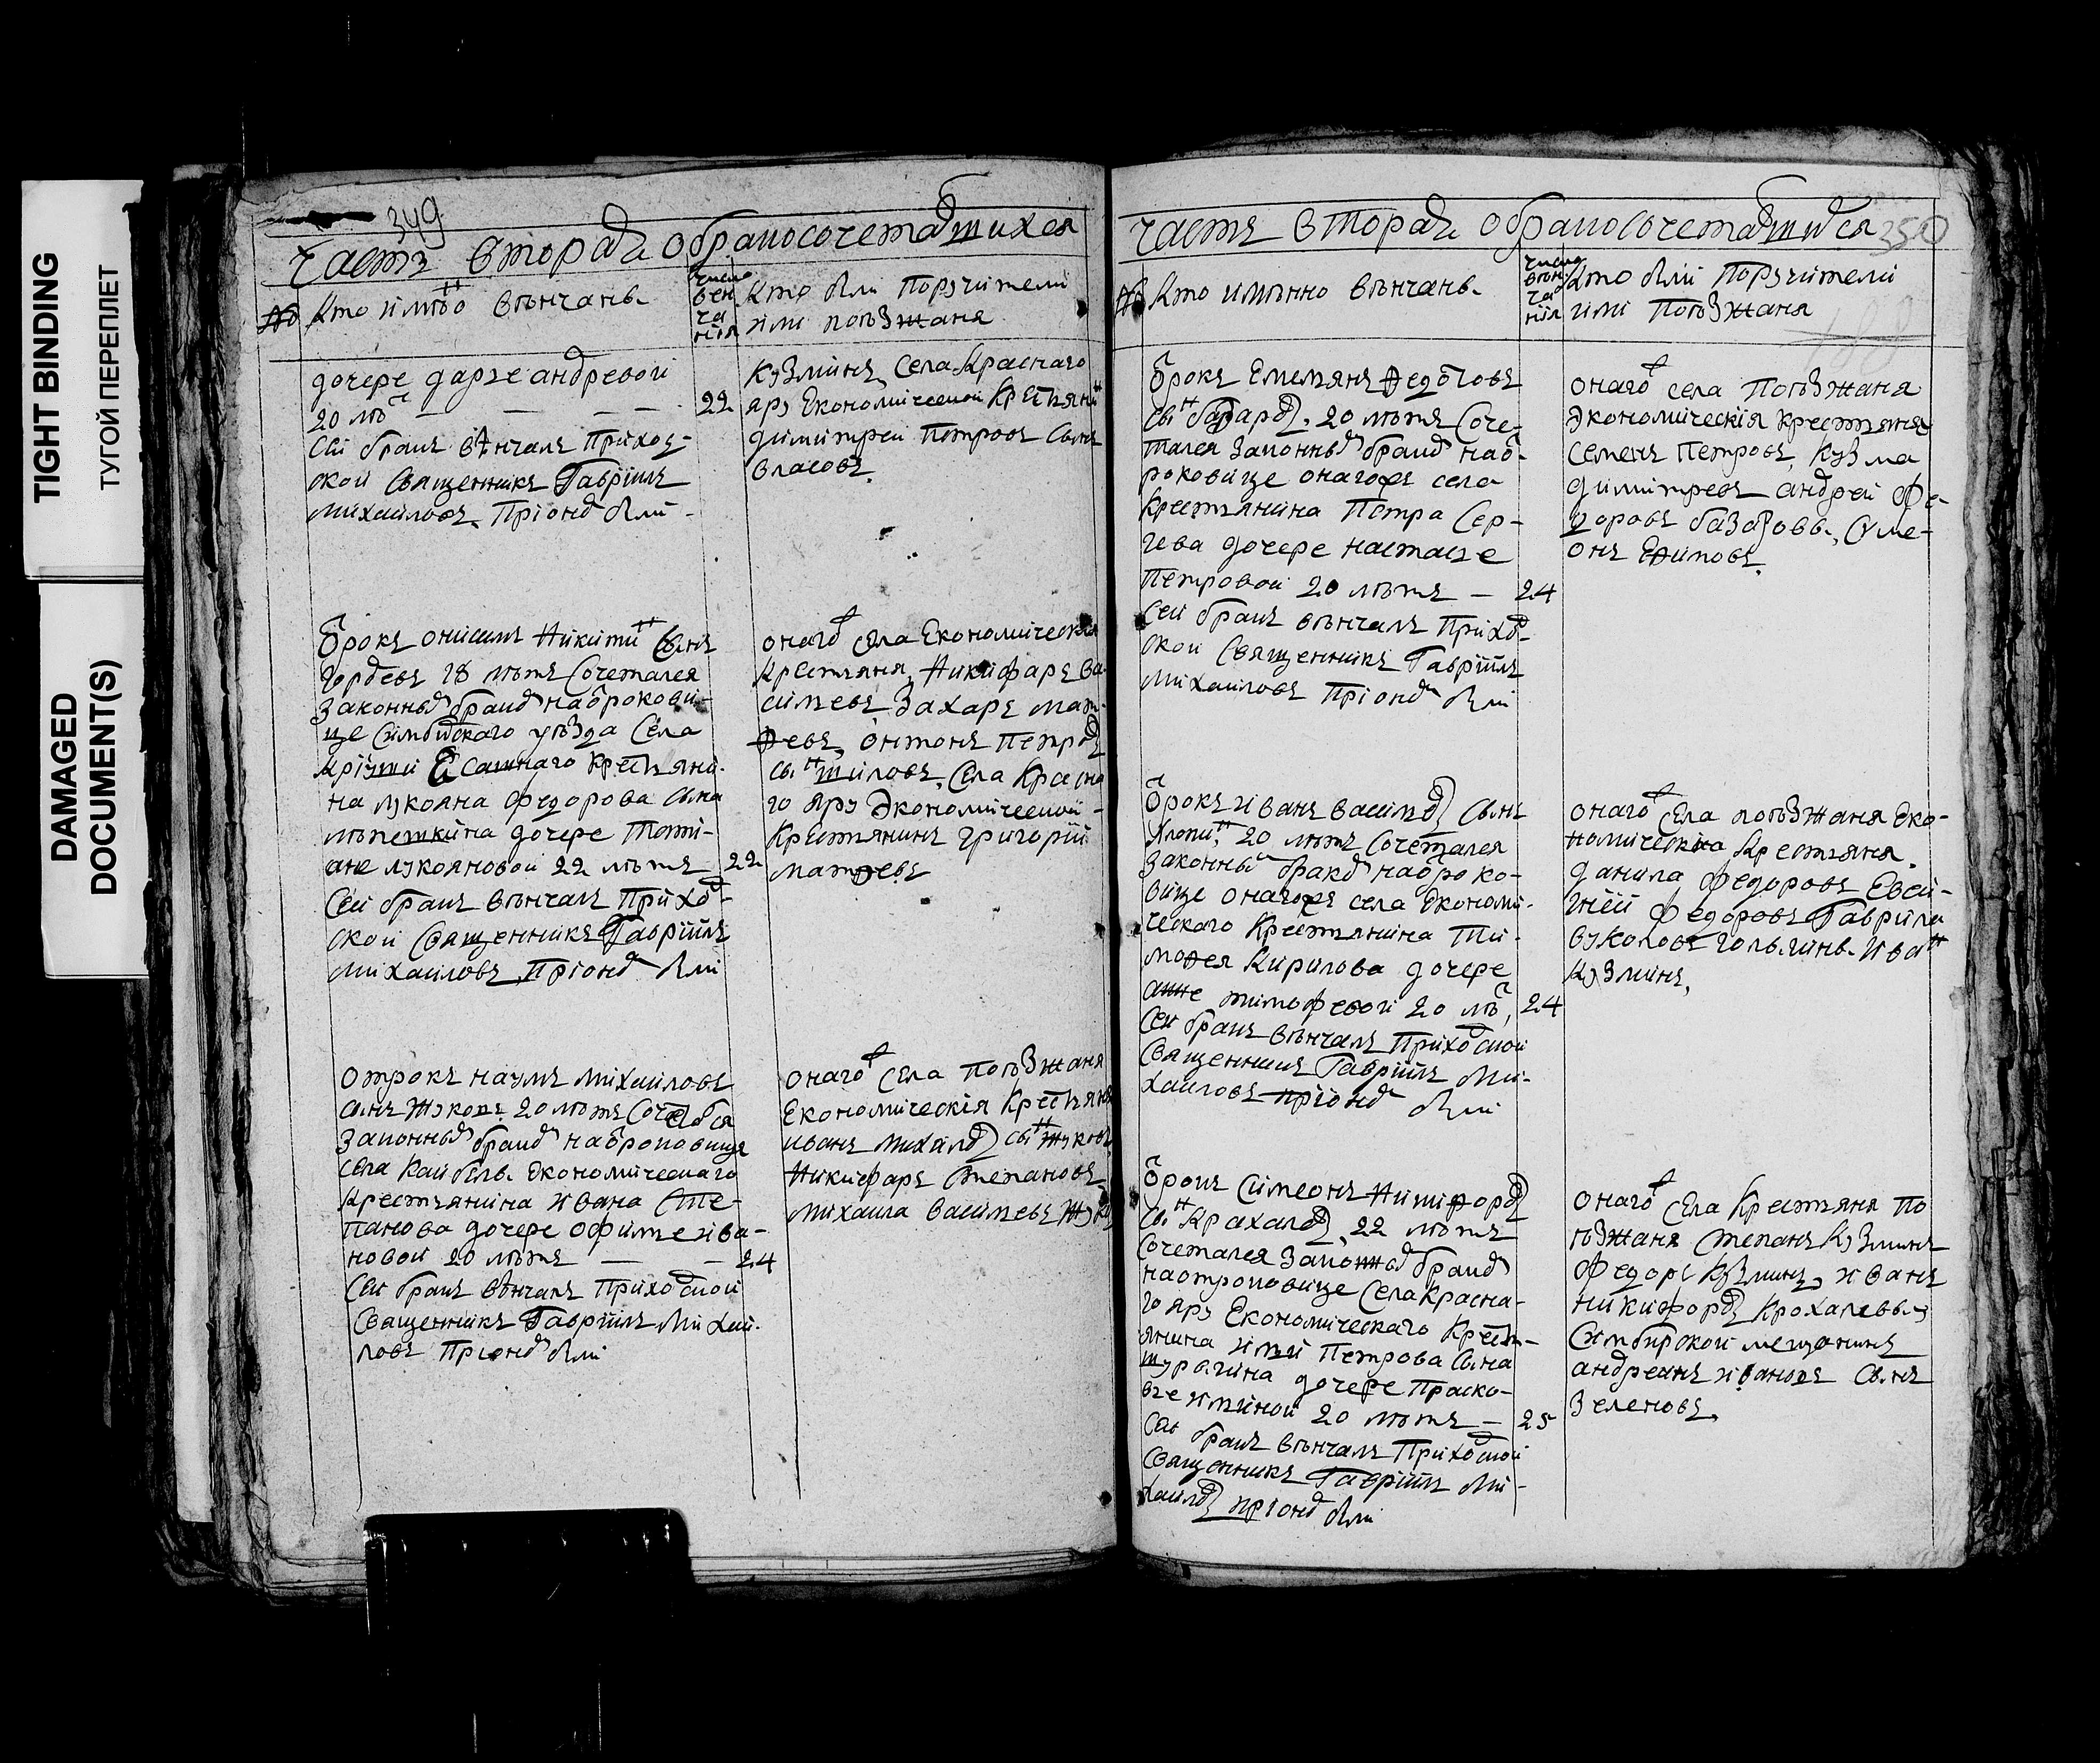 TIGHT BINDING
ТУГОЙ ПЕРЕПЛЕТ
DAMAGED
DOCUMENT(S)
349
часть вторая о бракосочетавшихся
№
Кто имѣнно вѣнчанъ
число
вен
ча
нія
Кто были поручители
или поѣзжаня
дочере дарье андревой
20 лѣт
22
Сей бракъ вѣнчалъ приход-
ской Священникъ Гавріилъ
Михаиловъ При оном были
Кузминъ, Села Краснаго
яру Економической Крестьянин
димитрей Петровъ Сынъ
власовъ.
Отрокъ онисимъ Никитин Сынъ
гордеевъ 18 лѣтъ Сочетался
законным браком на отрокови-
це Симбирскаго уѣзда Села
Кріуши Ясашнаго Крестьяни-
на лукояна Федорова Сына
лѣпешкина дочере Тати-
ане лукояновой 22 лѣтъ
22
Сей бракъ вѣнчалъ Приход-
ской Священникъ Гавріилъ
Михаиловъ, При оном были
онаго ж Села Економическія
Крестьяня, Никифаръ ва-
сильевъ, Захаръ мат-
феевъ, онтонъ Петров
сын шиловъ, Села Красна
го яру Экономической
Крестьянинъ григорій
матфеевъ
Отрокъ наумъ михаиловъ
сынъ жуковъ 20 лѣтъ Сочетался
законным браком на отроковице
села Кайбѣлъ Економическаго
Крестьянина ивана Сте-
панова дочере Офимье ива-
новой 20 лѣтъ
24
Сей бракъ вѣнчалъ Приходской
Священникъ Гавріилъ Михаи-
ловъ При оном были
онаго ж Села Поѣзжаня
Економическія Крестьяня
иванъ Михаилов сын жуковъ
Никифаръ Степановъ
Михаила васильевъ
часть вторая о бракосочетавшихся
350
№
Кто имѣнно вѣнчанъ
число
вѣн
ча
нія
Кто были Поручители
или Поѣзжаня
Отрокъ Емельянъ Федотовъ
20 лѣтъ Соче-
тался законным браком на от-
роковице онагожъ села
Крестьянина Петра Сер-
геева дочере настасье
Петровой 20 лѣтъ
24
Сей бракъ вѣнчалъ Приход-
ской Священникъ Гавріилъ
Михаиловъ При оном были
онаго ж села Поѣзжаня
Экономическія Крестьяня
Семенъ Петровъ, Кузма
димитревъ андрей Фе-
доровъ базаровъ, Симе-
онъ Ефимовъ.
Отрокъ иванъ васильев Сынъ
20 лѣтъ Сочетался
законным браком на отроко-
вице онагожъ села Економи-
ческаго Крестьянина Ти-
мофея Кирилова дочере
анне тимофевой 20 лѣт,
24
Сей бракъ вѣнчалъ Приходской
Священникъ Гавріилъ Ми-
хаиловъ при оном были
онаго ж Села поѣзжаня Эко-
номическія Крестьяня.
данила Федоровъ Евсигнѣй
Федоровъ Гаврила
вуколовъ Иван
Кузминъ,
Отрокъ Симеонъ Никифоров
сын Крахалев, 22 лѣтъ
Сочетался законным браком
на отроковице Села Красна-
го яру Економическаго Крест-
янина ильи Петрова Сына
дочере Праско-
вье ильиной 20 лѣтъ
25
Сей бракъ вѣнчалъ Приходской
Священникъ Гавріилъ Ми-
хаилов при оном были
онаго ж Села Крестьяня По
ѣзжаня Степанъ Кузминъ
Федоръ Кузминъ, иванъ
никифоров Крохалевы,
Симбирской мещенинъ
андреянъ ивановъ Сынъ
Зеленовъ,